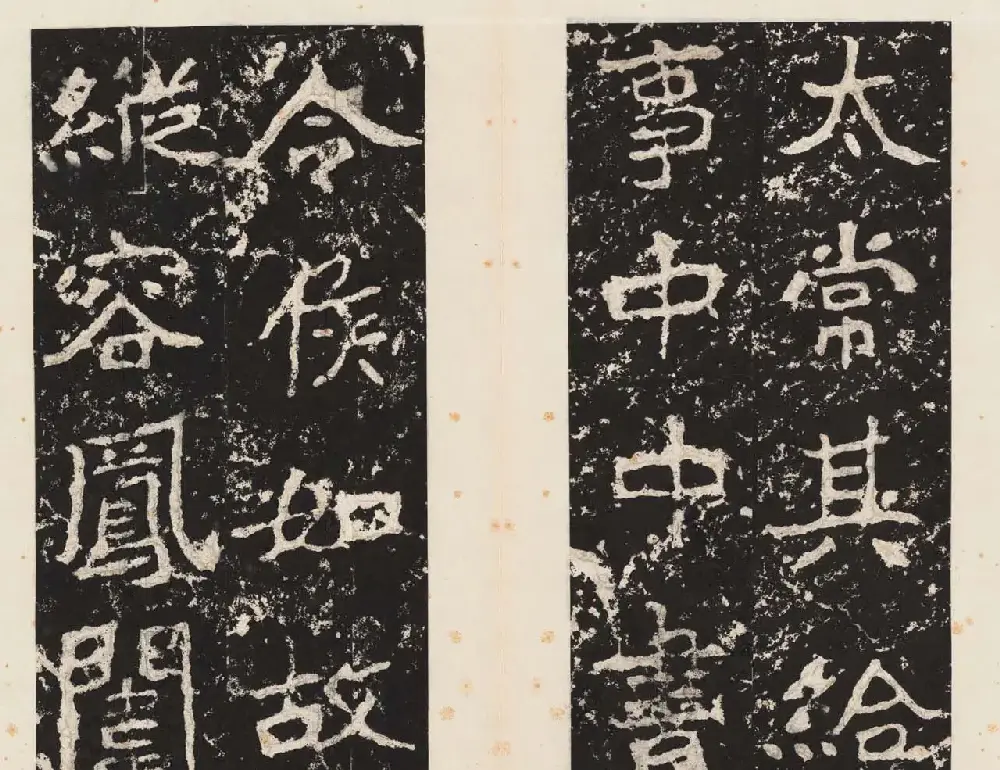 太常其給
事中中書
令侯如故
縱容鳳闈